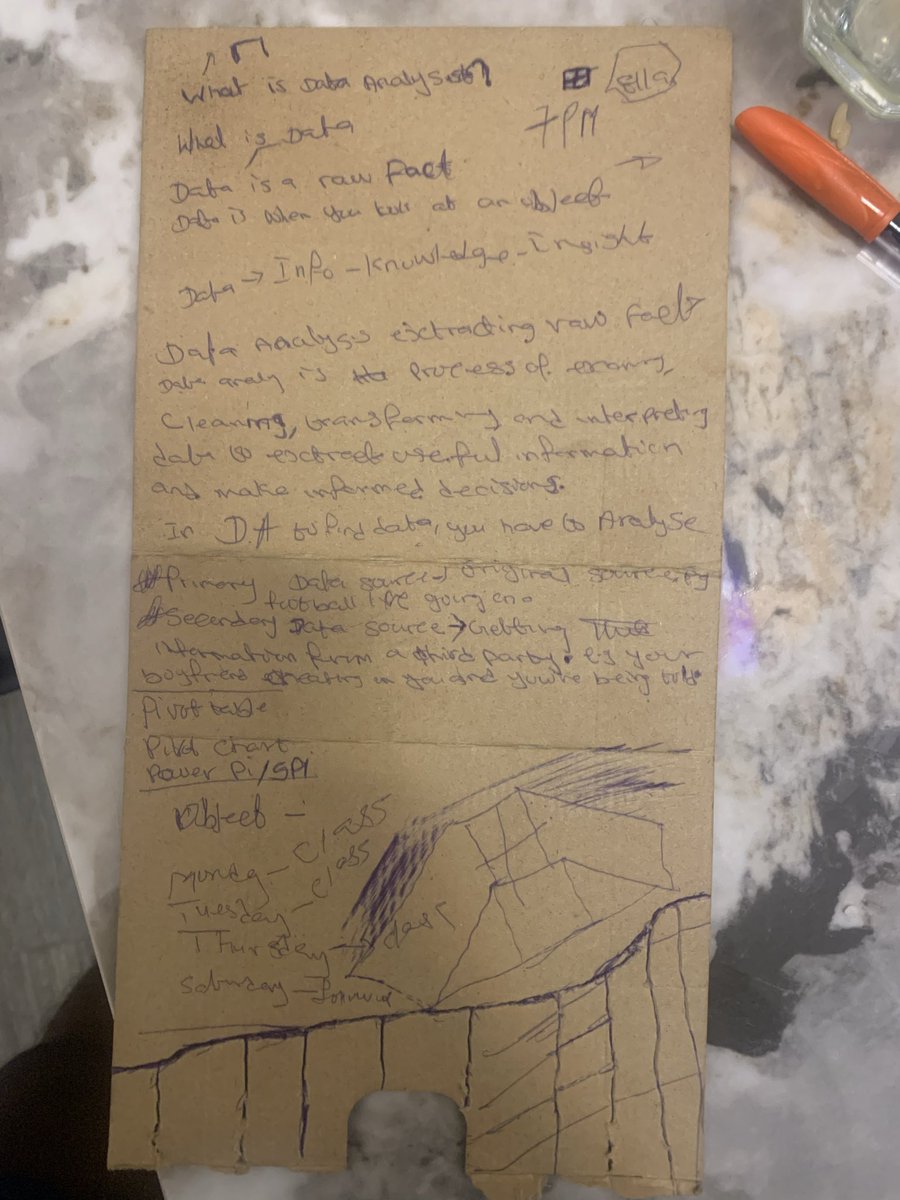 What is Data Analysis?
ella
7PM
What is Data
Data is a raw fact
Data is when you look at an object
Data → Info - Knowledge - Insight
Data Analysis extracting raw fact
Data analy is the process of
Cleaning, transforming and interpreting
data to extract useful information
and make informed decisions.
In DA to find data, you have to Analyse
#Primary Data source → original source. eg
football live going on.
#Secondary Data source → Getting
information from a third party. eg your
boyfriend cheating on you and you're being told.
Pivot table
Pivot Chart
Power Pi/SPI
Object -
Monday - Class
Tuesday - Class
Thursday → class
Saturday -